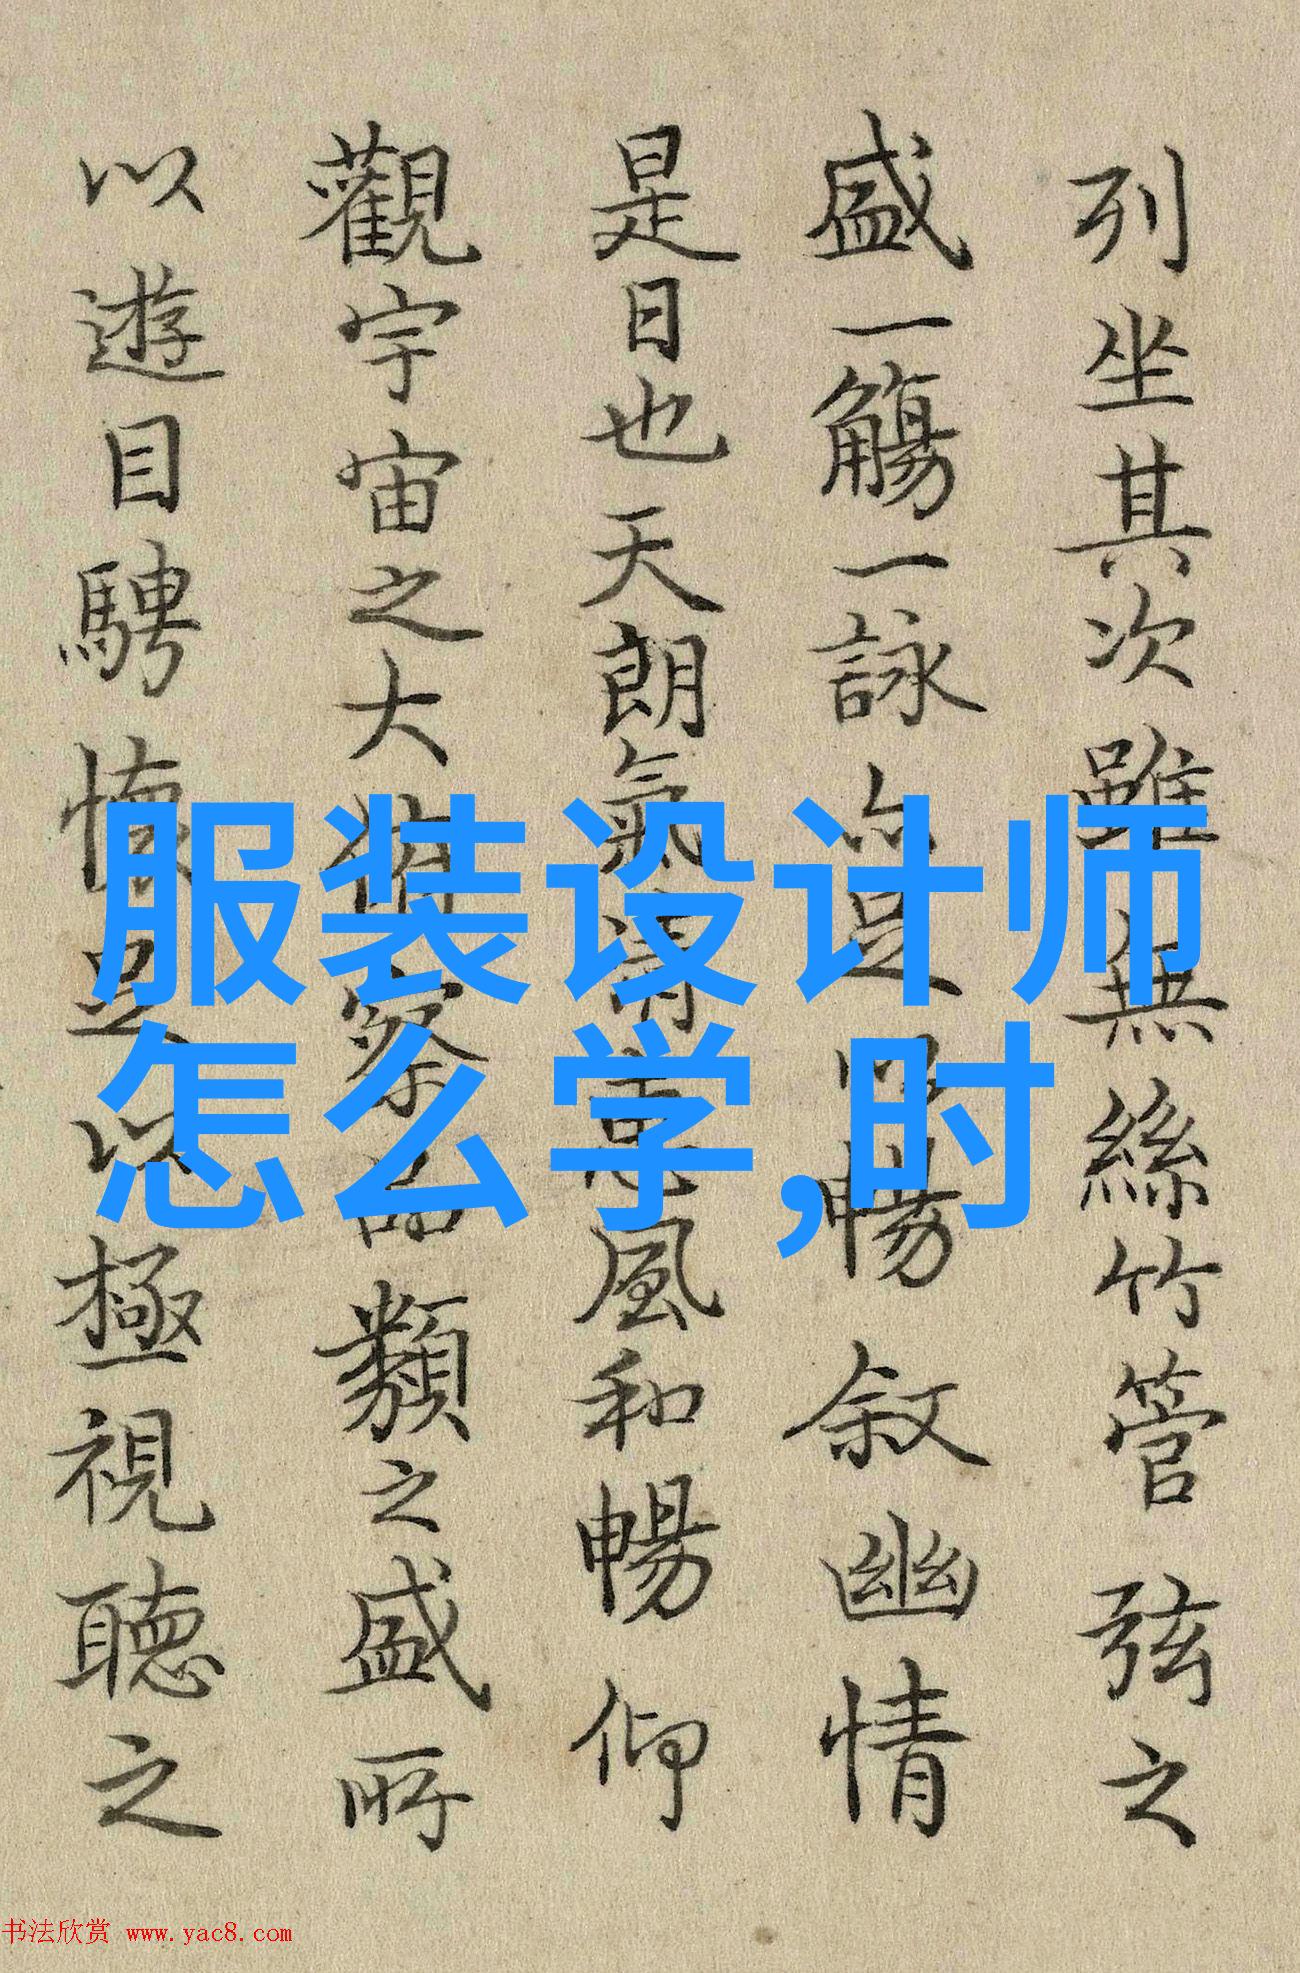 列坐其次雖無絲竹管弦之
盛一觴一詠亦足以暢叙幽情
是日也天朗氣清惠風和暢仰
觀宇宙之大俯察品類之盛所
以遊目騁懷足以極視聽之
服装设计师
怎么学,时
书法欣赏 www.yac8.com